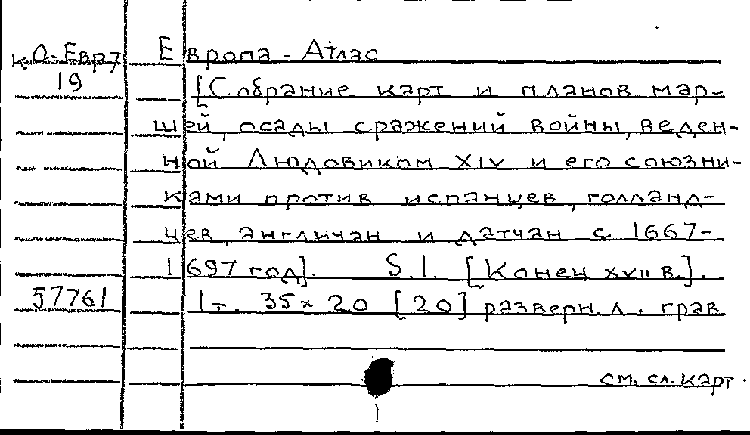 к О-Евр7 Европа - Атлас
19 [Собрание карт и планов мар-
шей, осады сражений войны, веден-
ной Людовиком XIV и его союзни-
ками против испанцев, голланд-
цев, англичан и датчан с 1667-
1697 год]. S.l. [Конец XVII в.].
57761 1 т. 35 × 20 [20] разверн. л. грав
см. сл. карт.